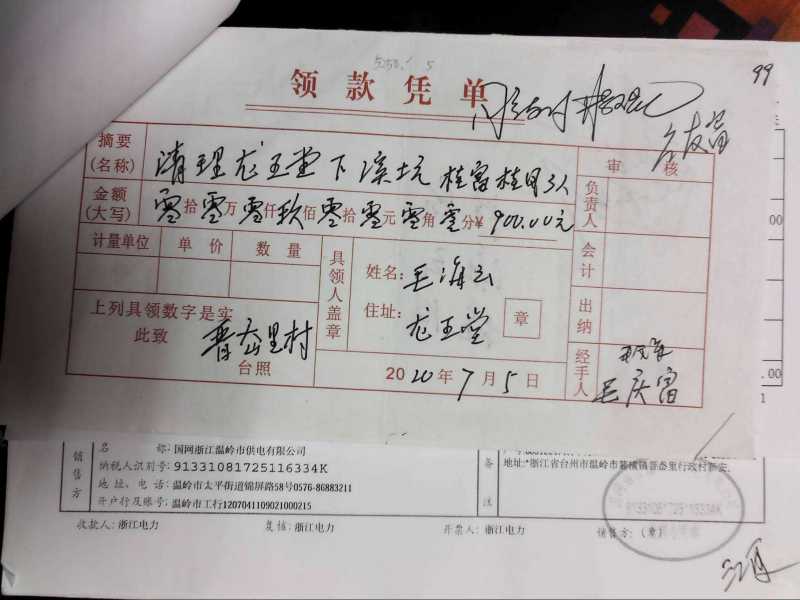 99
领款凭单
摘要(名称) 清理龙王堂下溪坑 桂富桂用3人
审核
金额(大写) 零拾零万零仟玖佰零拾零元零角零分¥900.00元
负责人
计量单位 单价 数量
具领人盖章
姓名:毛海云
会计
住址:龙王堂 章
出纳
上列具领数字是实
此致 晋岙里村
台照
2020年7月5日
经手人
.00
1
销售方
名 称:国网浙江温岭市供电有限公司
纳税人识别号:91331081725116334K
地 址、电 话:温岭市太平街道锦屏路58号0576-86883211
开户行及账号:温岭市工行1207041109021000215
备注
收款人:浙江电力 复核:浙江电力 开票人:浙江电力 销售方:(章)
91331081725116334K